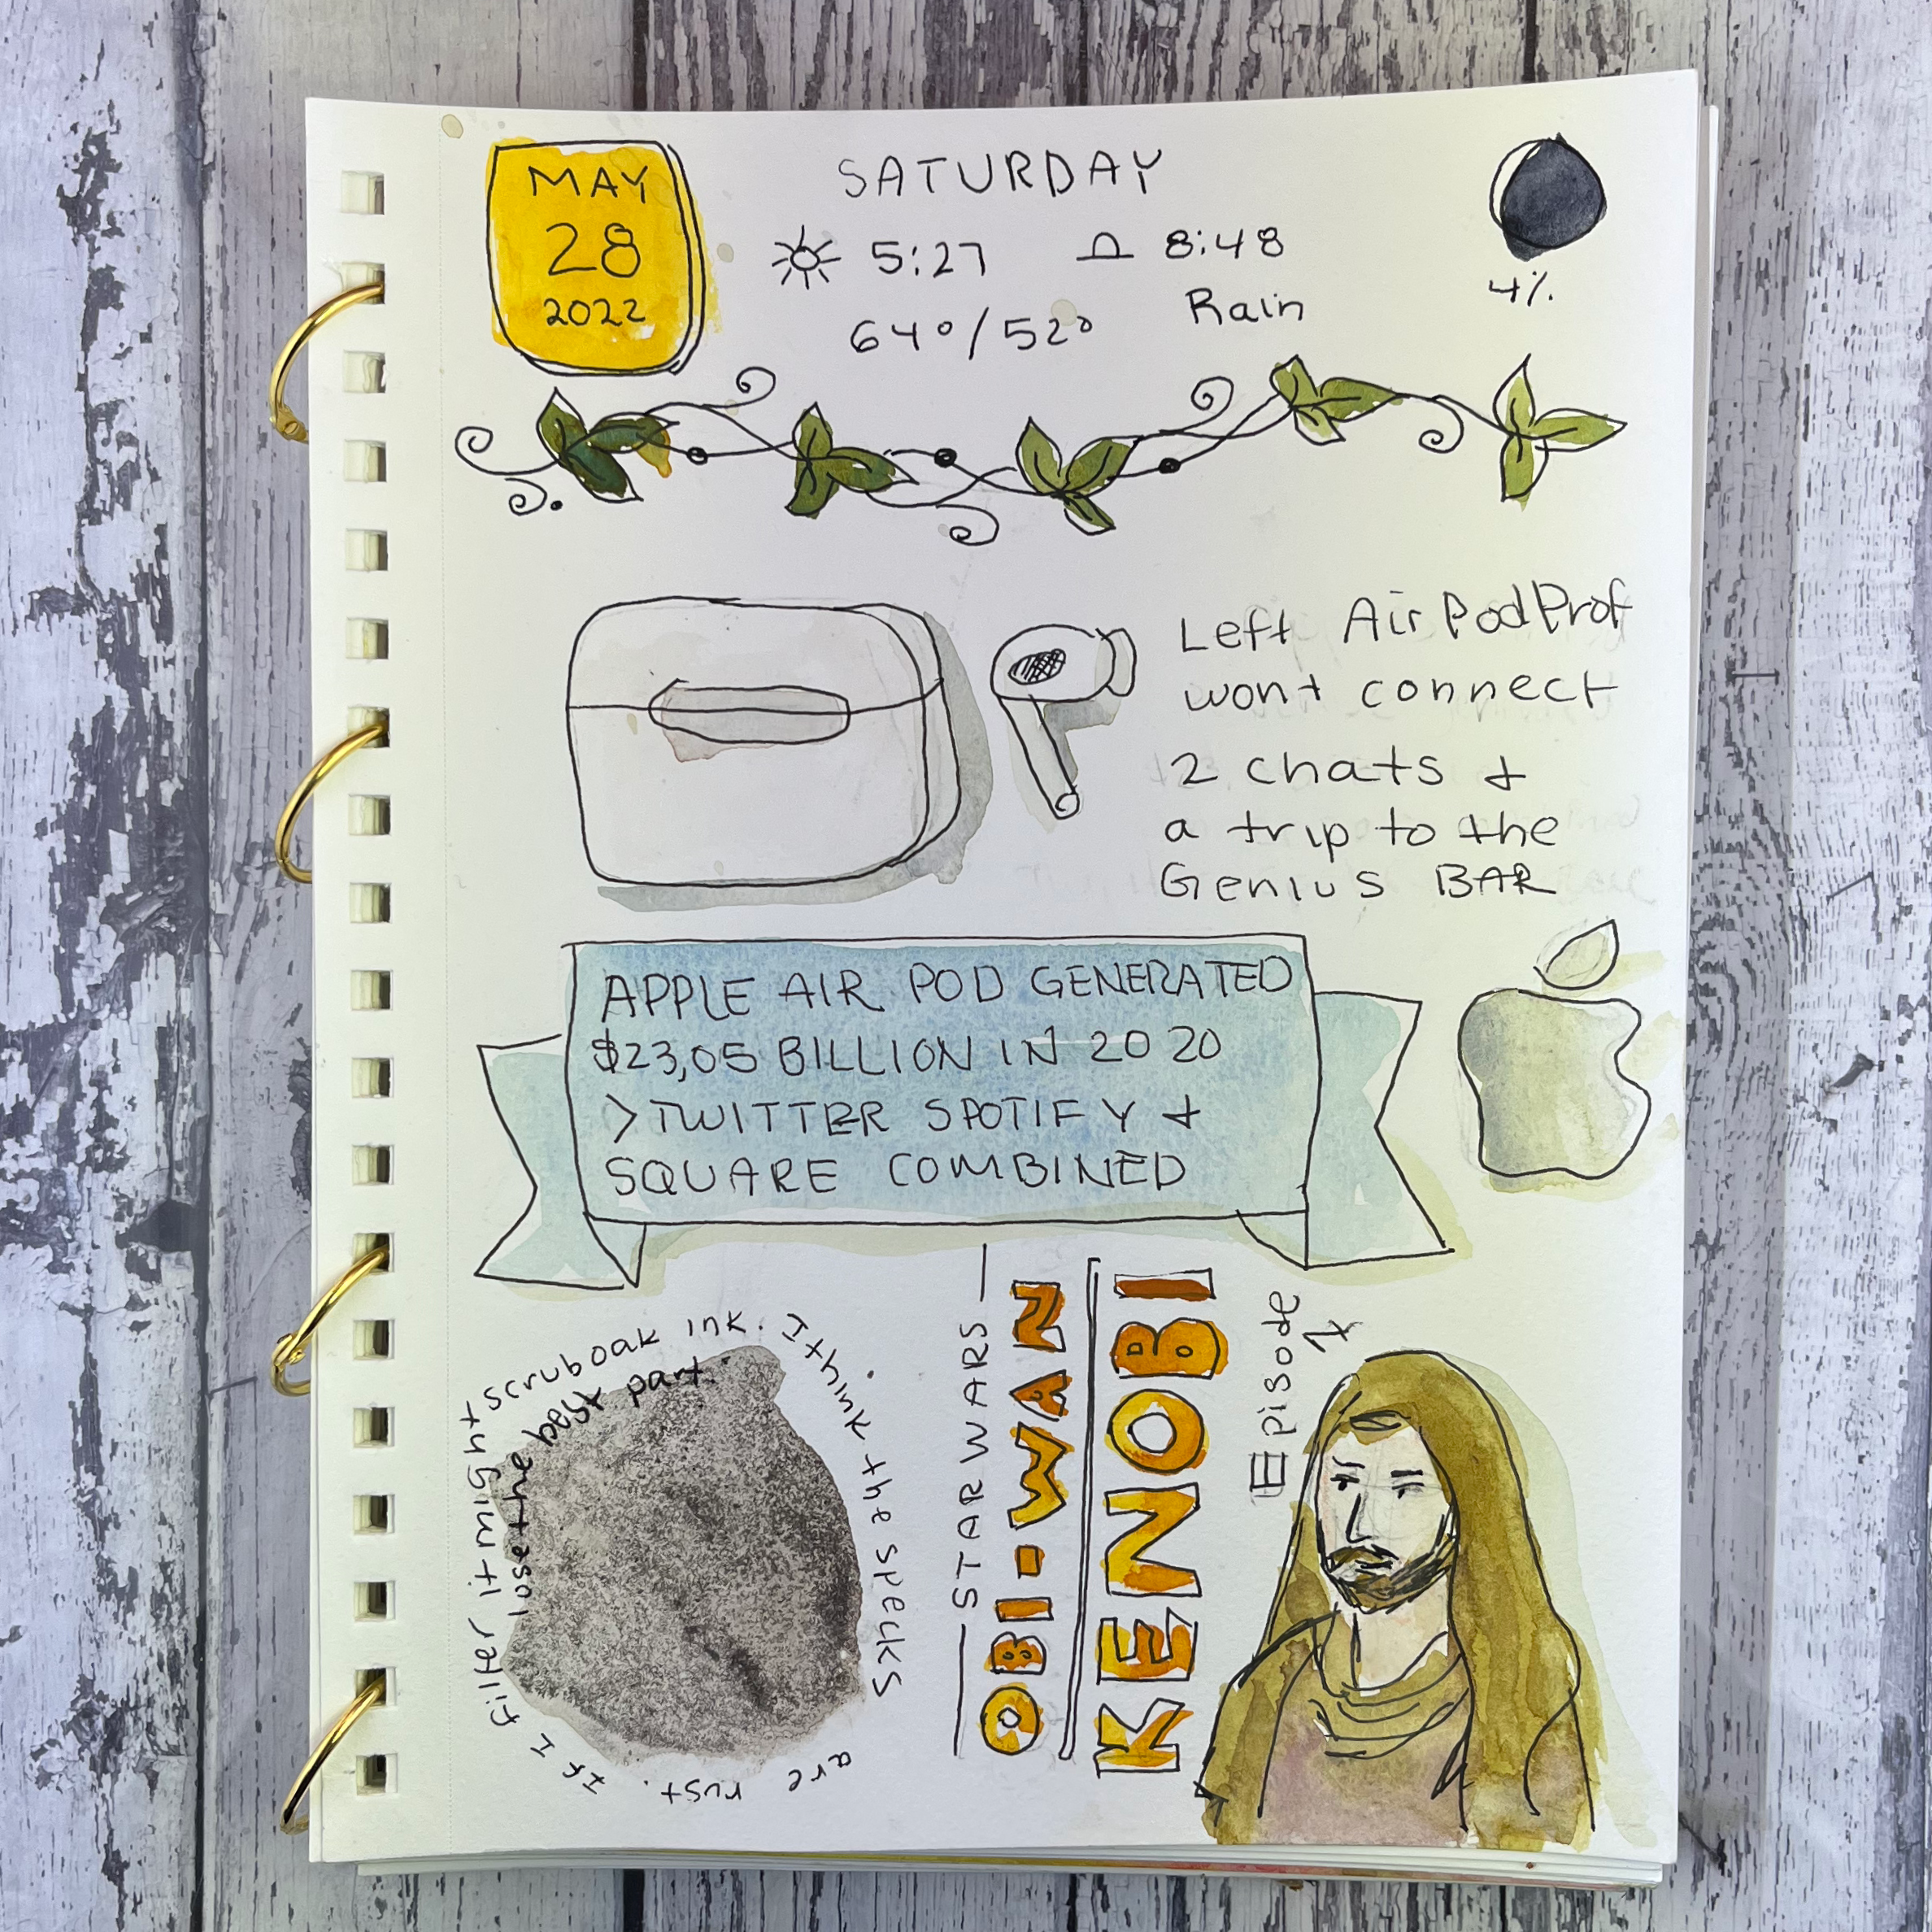 MAY
28
2022
SATURDAY
5:27
8:48
64°/52°
Rain
4%
Left AirPodProf
wont connect
2 chats &
a trip to the
Genius BAR
APPLE AIR POD GENERATED
$23,05 BILLION IN 2020
>TWITTER SPOTIFY &
SQUARE COMBINED
scruboak ink. I think the specks are rust. If I filter it might lose the best part.
STAR WARS
OBI-WAN
KENOBI
Episode